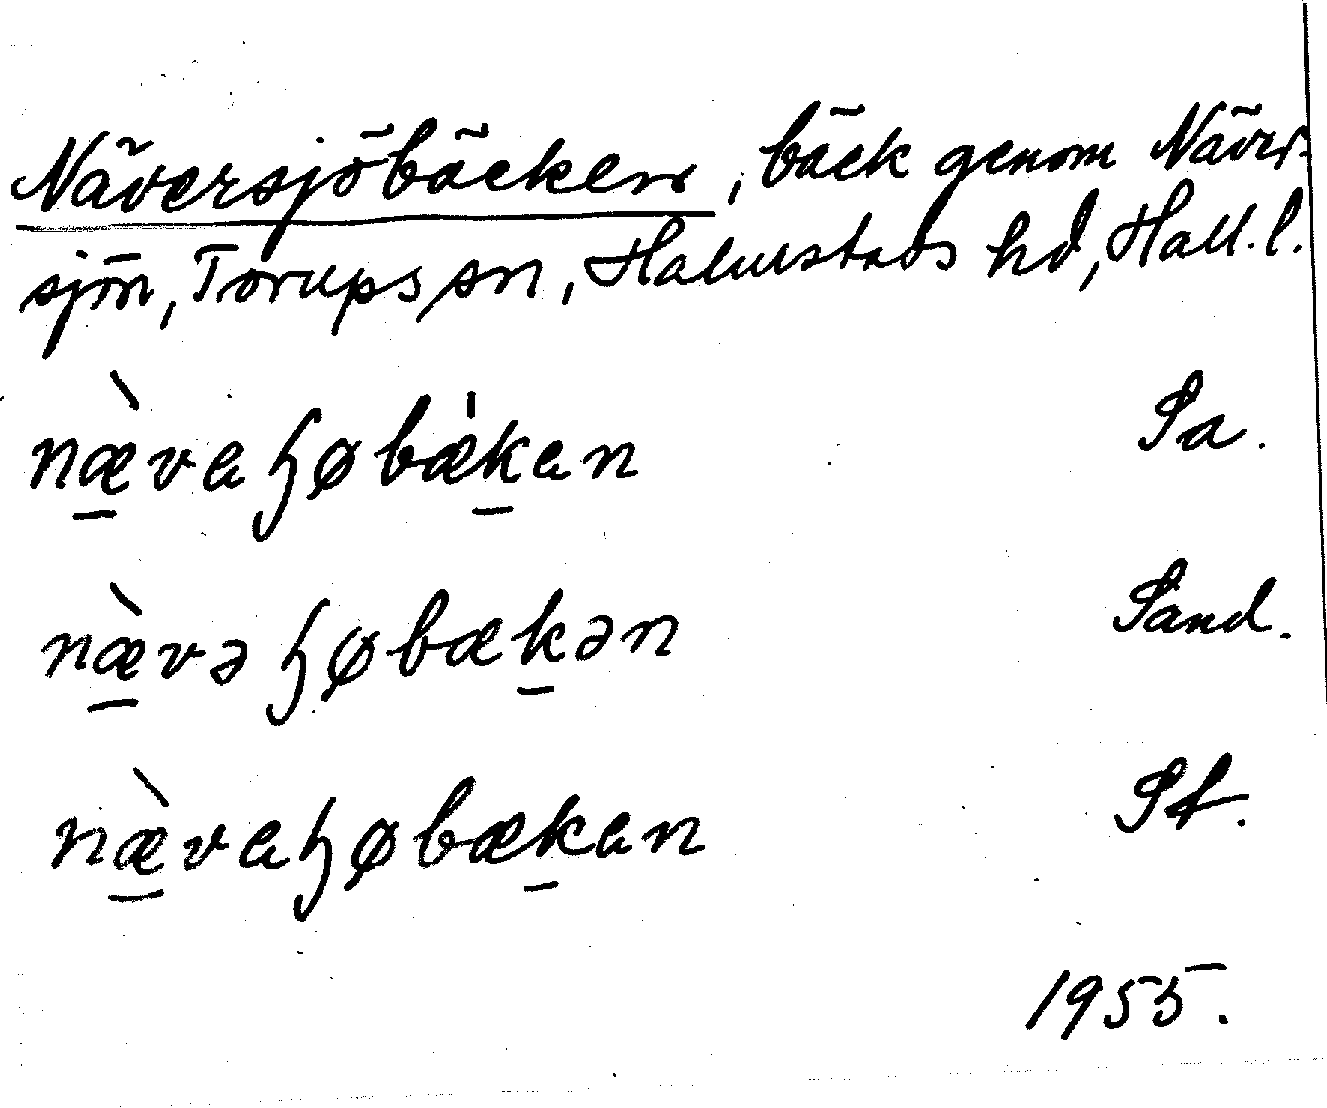 Näversjöbäcken, bäck genom Näver-
sjön, Torups sn, Halmstads hd, Hall. l.
næ̀vaɧøbæ̍kan Sa.
næ̀vəɧøbækən Sand.
næ̀vaɧøbækan St.
1955.